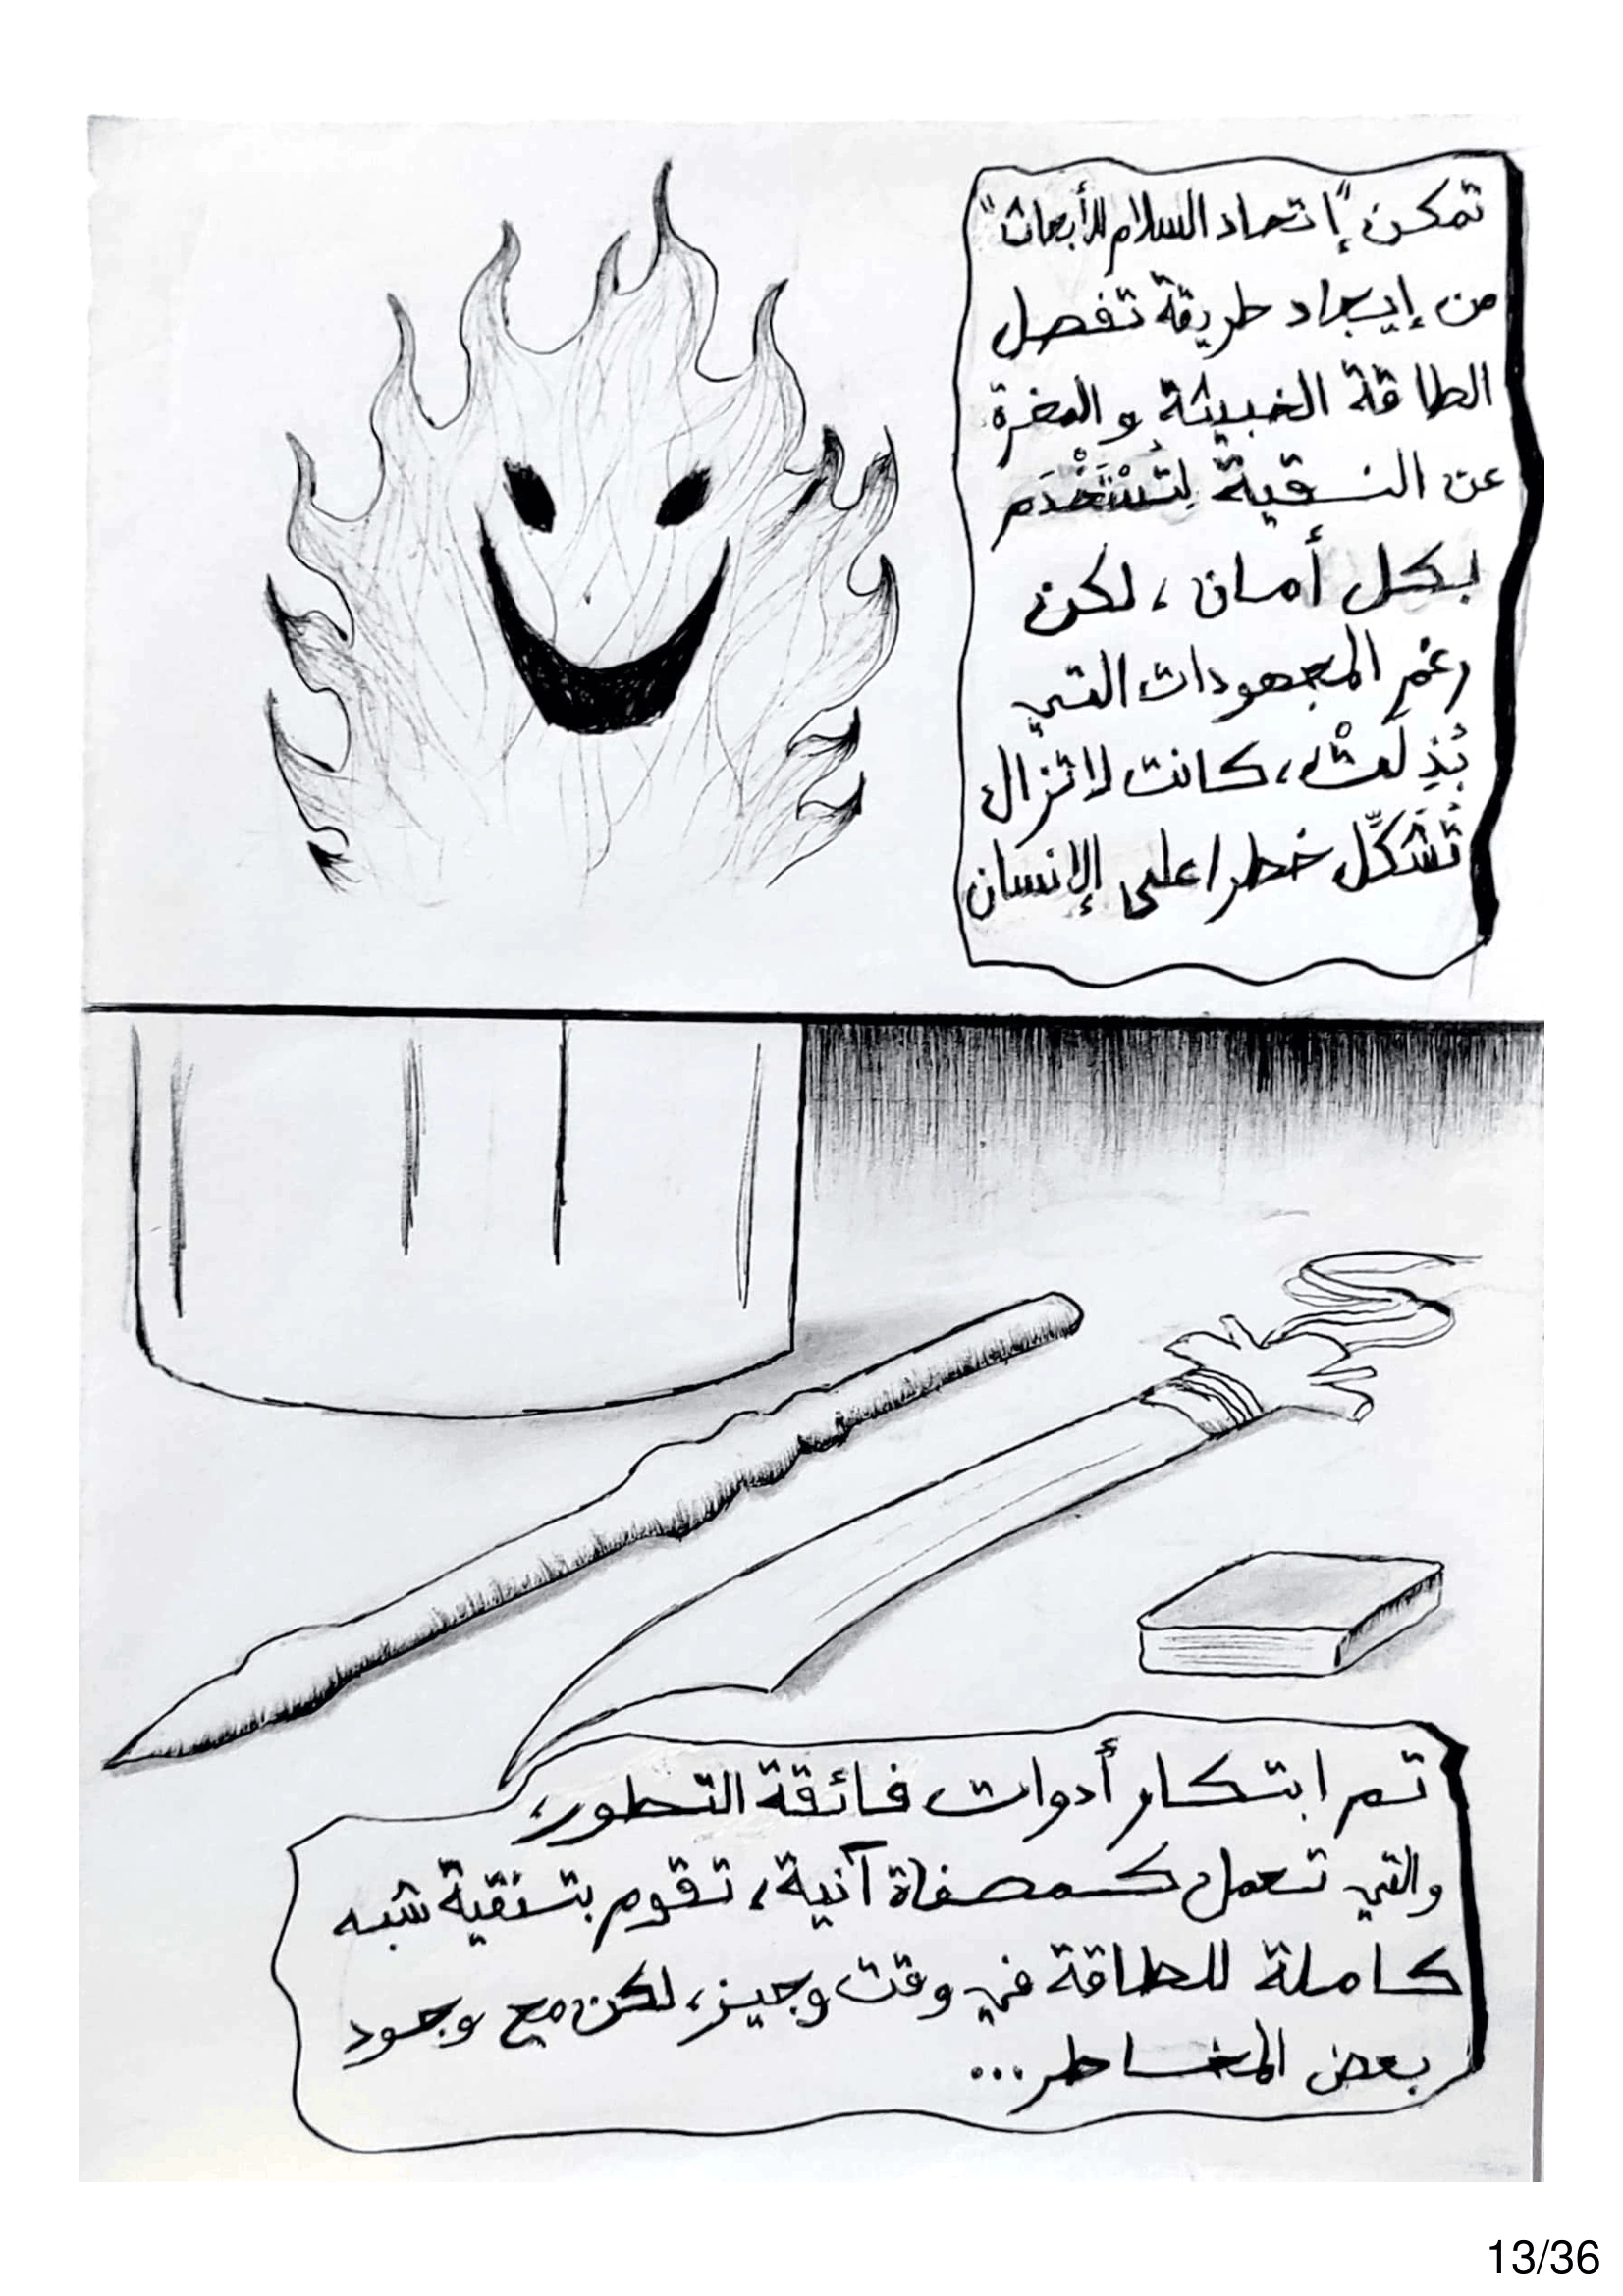 تمكن "إتحاد السلام للأبحاث"
من إيجاد طريقة تفصل
الطاقة الخبيثة و المضرة
عن النقية لِتُسْتَخْدَم
بكل أمان، لكن
رغم المجهودات التي
بُذِلَتْ، كانت لا تزال
تُشَكِّل خطرا على الإنسان
تم ابتكار أدوات فائقة التطور،
والتي تعمل كمصفاة آنية، تقوم بتنقية شبه
كاملة للطاقة في وقت وجيز، لكن مع وجود
بعض المخاطر...
13/36